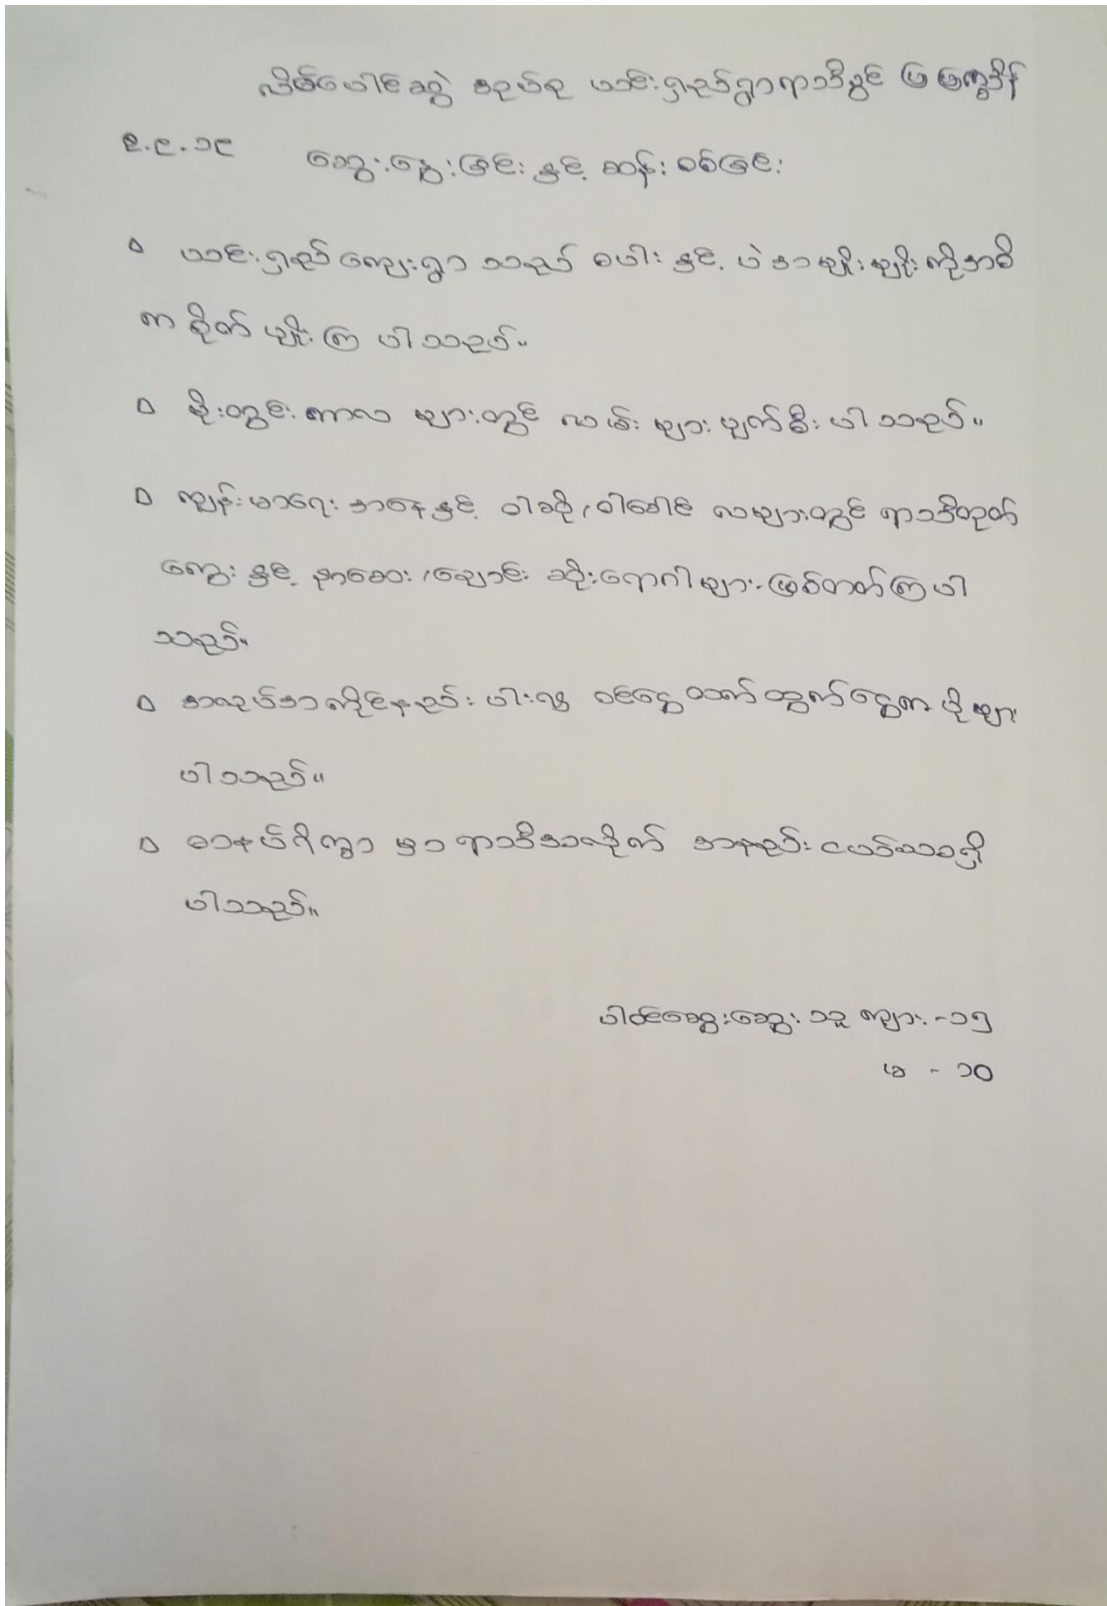 လိမ်ပေါင်ဆွဲ အုပ်စု ယင်းရှည်ရွာရာသီခွင် ပြ ပြက္ခဒိန်
၉.၉.၁၉ ဆွေးနွေးခြင်း နှင့် ဆန်းစစ်ခြင်း
ယင်းရှည် ကျေးရွာ သည် စပါး နှင့် ပဲ အမျိုးမျိုး ကိုအဓိ
က စိုက် ပျိုး ကြ ပါသည်။
မိုးတွင်း ကာလ များတွင် လမ်း များ ပျက်စီး ပါ သည်။
ကျန်းမာရေး အနေနှင့် ဝါဆို၊ ဝါခေါင် လများတွင် ရာသီတုတ်
ကွေး နှင့် နှာစေး ၊ချောင်း ဆိုးရောဂါများ ဖြစ်တတ်ကြပါ
သည်။
အလုပ်အကိုင်နည်း ပါး၍ ဝင်ငွေထက်ထွက်ငွေက ပိုများ
ပါသည်။
စာနယ်ဂျွာ မှာ ရာသီအလိုက် အနည်း ငယ်သာရှိ
ပါသည်။
ပါဝင်ဆွေးနွေး သူ ကျား -၁၅
မ - ၁၀